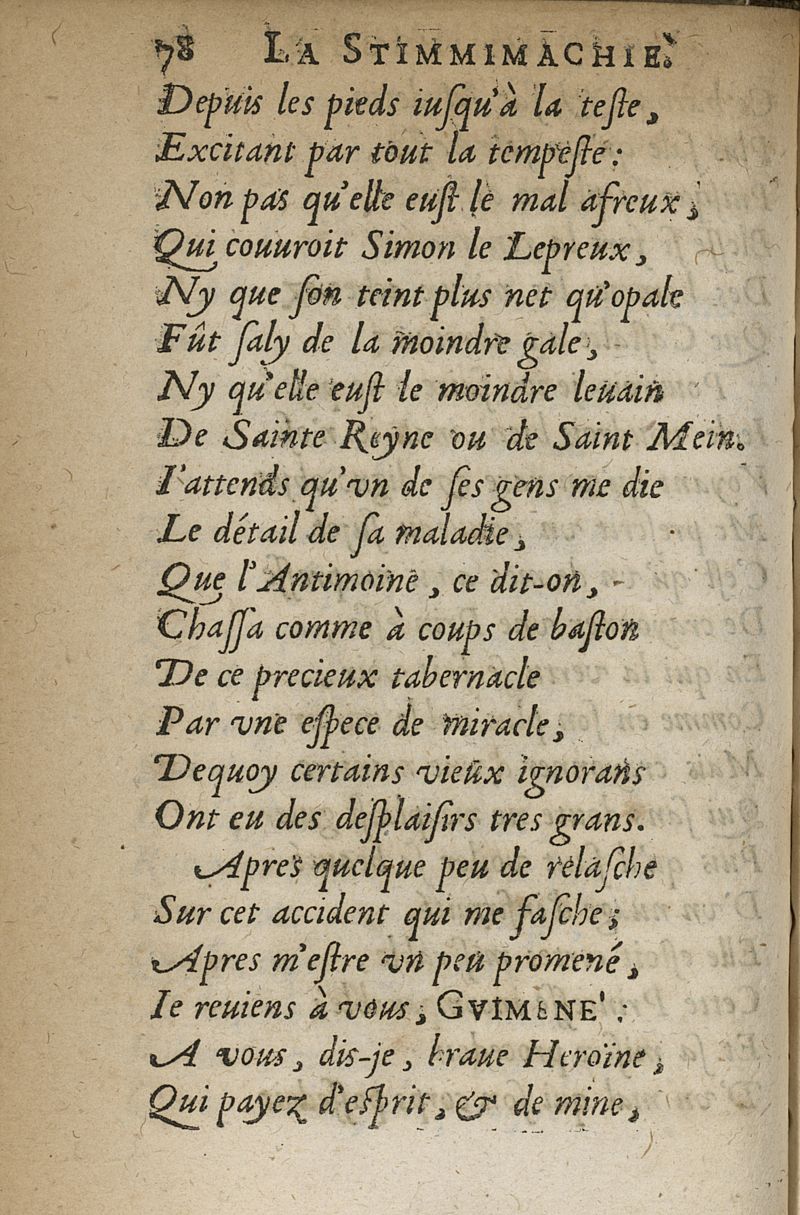 78 LA STIMMIMACHIE.
Depuis les pieds iuſqu'à la teſte,
Excitant par tout la tempeſte:
Non pas qu'elle euſt le mal afreux,
Qui couuroit Simon le Lepreux,
Ny que ſon teint plus net qu'opale
Fût ſaly de la moindre gale,
Ny qu'elle euſt le moindre leuain
De Sainte Reyne ou de Saint Mein.
I'attends qu'vn de ſes gens me die
Le détail de ſa maladie,
Que l'Antimoine, ce dit-on,
Chaſſa comme à coups de baſton
De ce precieux tabernacle
Par vne eſpece de miracle,
Dequoy certains vieux ignorans
Ont eu des deſplaiſirs tres grans.
Apres quelque peu de relaſche
Sur cet accident qui me faſche;
Apres m'eſtre vn peu promené,
Ie reuiens à vous, GVIMENE':
A vous, dis-je, braue Heroïne,
Qui payez d'eſprit, & de mine,